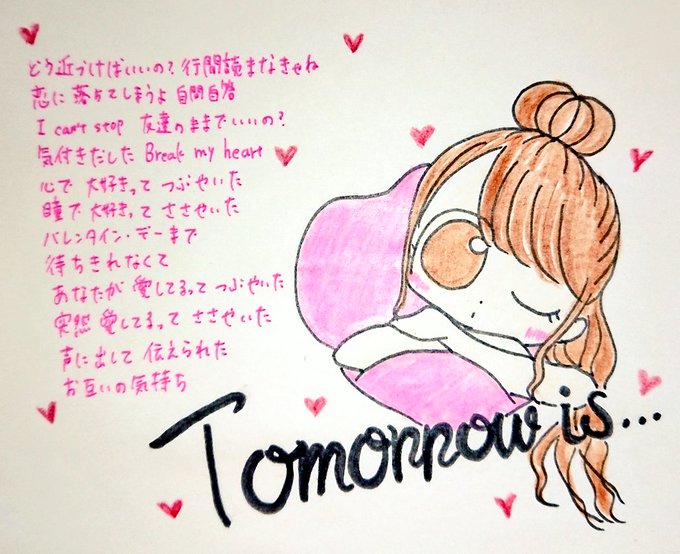 どう近づけばいいの？行間読まなきゃね
恋に落ちてしまうよ 自問自答
I can't stop 友達のままでいいの？
気付きだした Break my heart
心で大好きって つぶやいた
瞳で大好きって ささやいた
バレンタイン・デーまで
待ちきれなくて
あなたが 愛してるって つぶやいた
突然 愛してるって ささやいた
声に出して 伝えられた
お互いの気持ち
Tomorrow is...